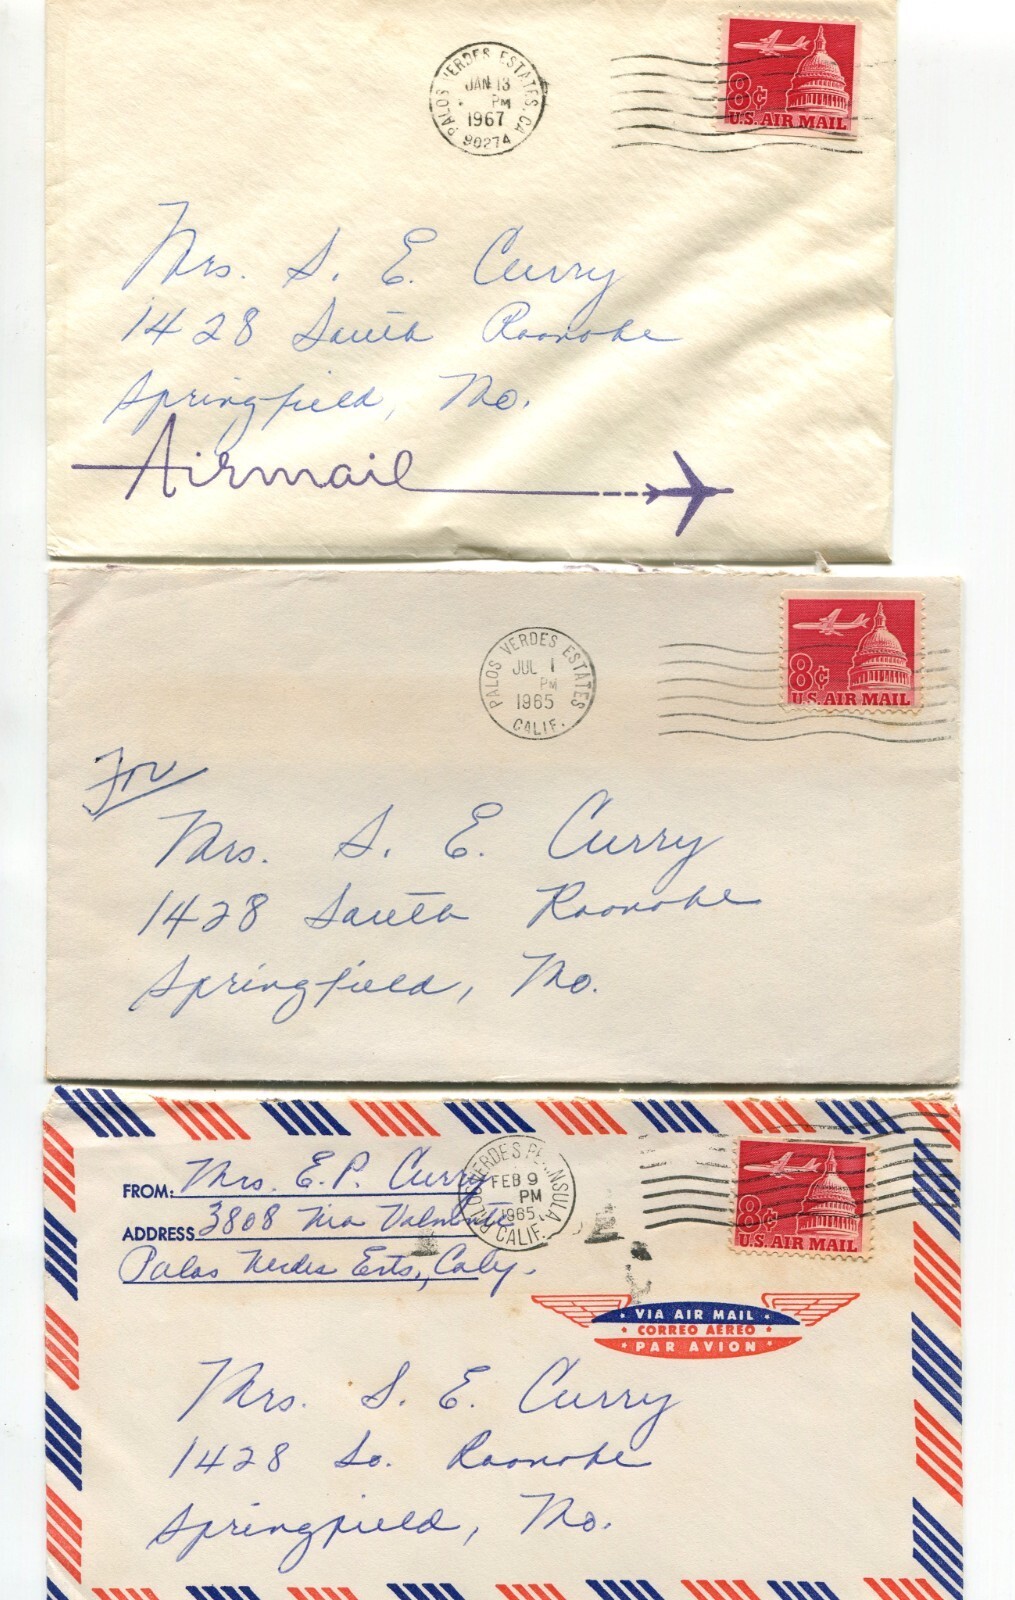 PALOS VERDES ESTATES, CA
JAN 13
PM
1967
90274
8¢
U.S. AIR MAIL
Mrs. S. E. Curry
1428 South Roanoke
Springfield, Mo.
Airmail
PALOS VERDES ESTATES
JUL 1
PM
1965
CALIF.
8¢
U.S. AIR MAIL
For
Mrs. S. E. Curry
1428 South Roanoke
Springfield, Mo.
FROM: Mrs. E. P. Curry
ADDRESS 3808 Via Valmonte
Palos Verdes Ests., Calif.
PALOS VERDES PENINSULA
FEB 9
PM
1965
CALIF.
8¢
U.S. AIR MAIL
VIA AIR MAIL
CORREO AEREO
PAR AVION
Mrs. S. E. Curry
1428 So. Roanoke
Springfield, Mo.